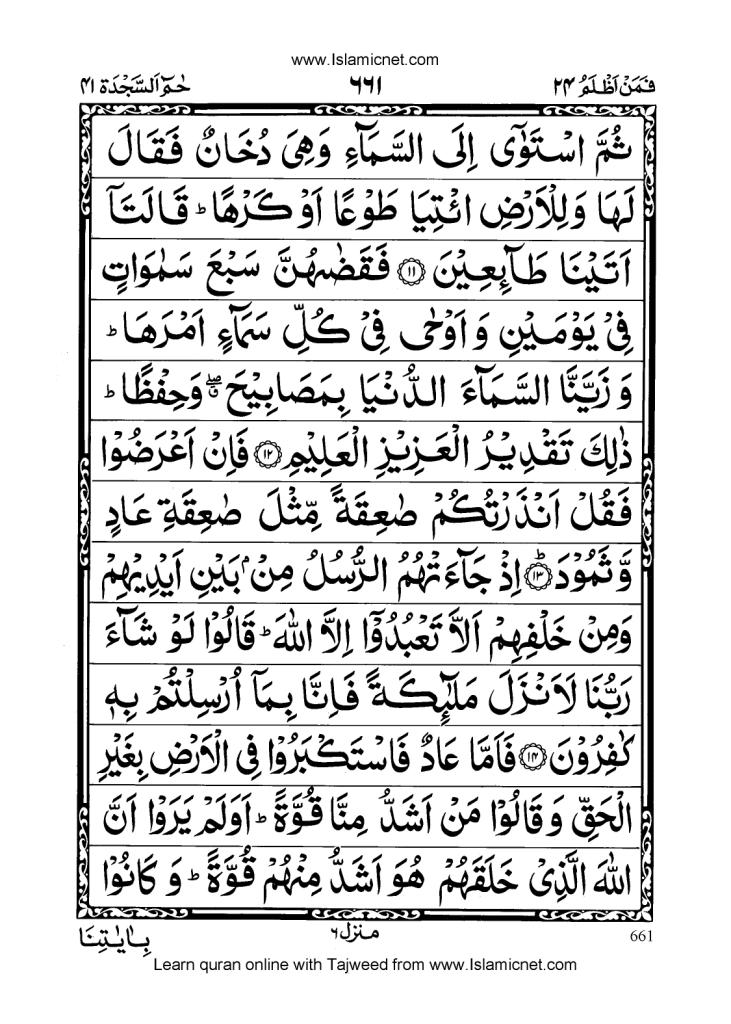 www.Islamicnet.com
فَمَنْ اَظْلَمُ ٢٤ ٦٦١ حٰمٓ اَلسَّجْدَة ٤١
ثُمَّ اسْتَوٰٓى اِلَى السَّمَآءِ وَهِىَ دُخَانٌ فَقَالَ
لَهَا وَلِلْاَرْضِ ائْتِيَا طَوْعًا اَوْ كَرْهًا ؕ قَالَتَآ
اَتَيْنَا طَآئِعِيْنَ ﴿١١﴾ فَقَضٰهُنَّ سَبْعَ سَمٰوَاتٍ
فِىْ يَوْمَيْنِ وَ اَوْحٰى فِىْ كُلِّ سَمَآءٍ اَمْرَهَا ؕ
وَ زَيَّنَّا السَّمَآءَ الدُّنْيَا بِمَصَابِيْحَ ۖ وَحِفْظًا ؕ
ذٰلِكَ تَقْدِيْرُ الْعَزِيْزِ الْعَلِيْمِ ﴿١٢﴾ فَاِنْ اَعْرَضُوْا
فَقُلْ اَنْذَرْتُكُمْ صٰعِقَةً مِّثْلَ صٰعِقَةِ عَادٍ
وَّثَمُوْدَ ؕ﴿١٣﴾ اِذْ جَآءَتْهُمُ الرُّسُلُ مِنْۢ بَيْنِ اَيْدِيْهِمْ
وَمِنْ خَلْفِهِمْ اَلَّا تَعْبُدُوْۤا اِلَّا اللّٰهَ ؕ قَالُوْا لَوْ شَآءَ
رَبُّنَا لَاَنْزَلَ مَلٰٓئِكَةً فَاِنَّا بِمَآ اُرْسِلْتُمْ بِهٖ
كٰفِرُوْنَ ﴿١٤﴾ فَاَمَّا عَادٌ فَاسْتَكْبَرُوْا فِى الْاَرْضِ بِغَيْرِ
الْحَقِّ وَ قَالُوْا مَنْ اَشَدُّ مِنَّا قُوَّةً ؕ اَوَلَمْ يَرَوْا اَنَّ
اللّٰهَ الَّذِىْ خَلَقَهُمْ هُوَ اَشَدُّ مِنْهُمْ قُوَّةً ؕ وَ كَانُوْا
بِاٰيٰتِنَا منزل ٦ 661
Learn quran online with Tajweed from www.Islamicnet.com